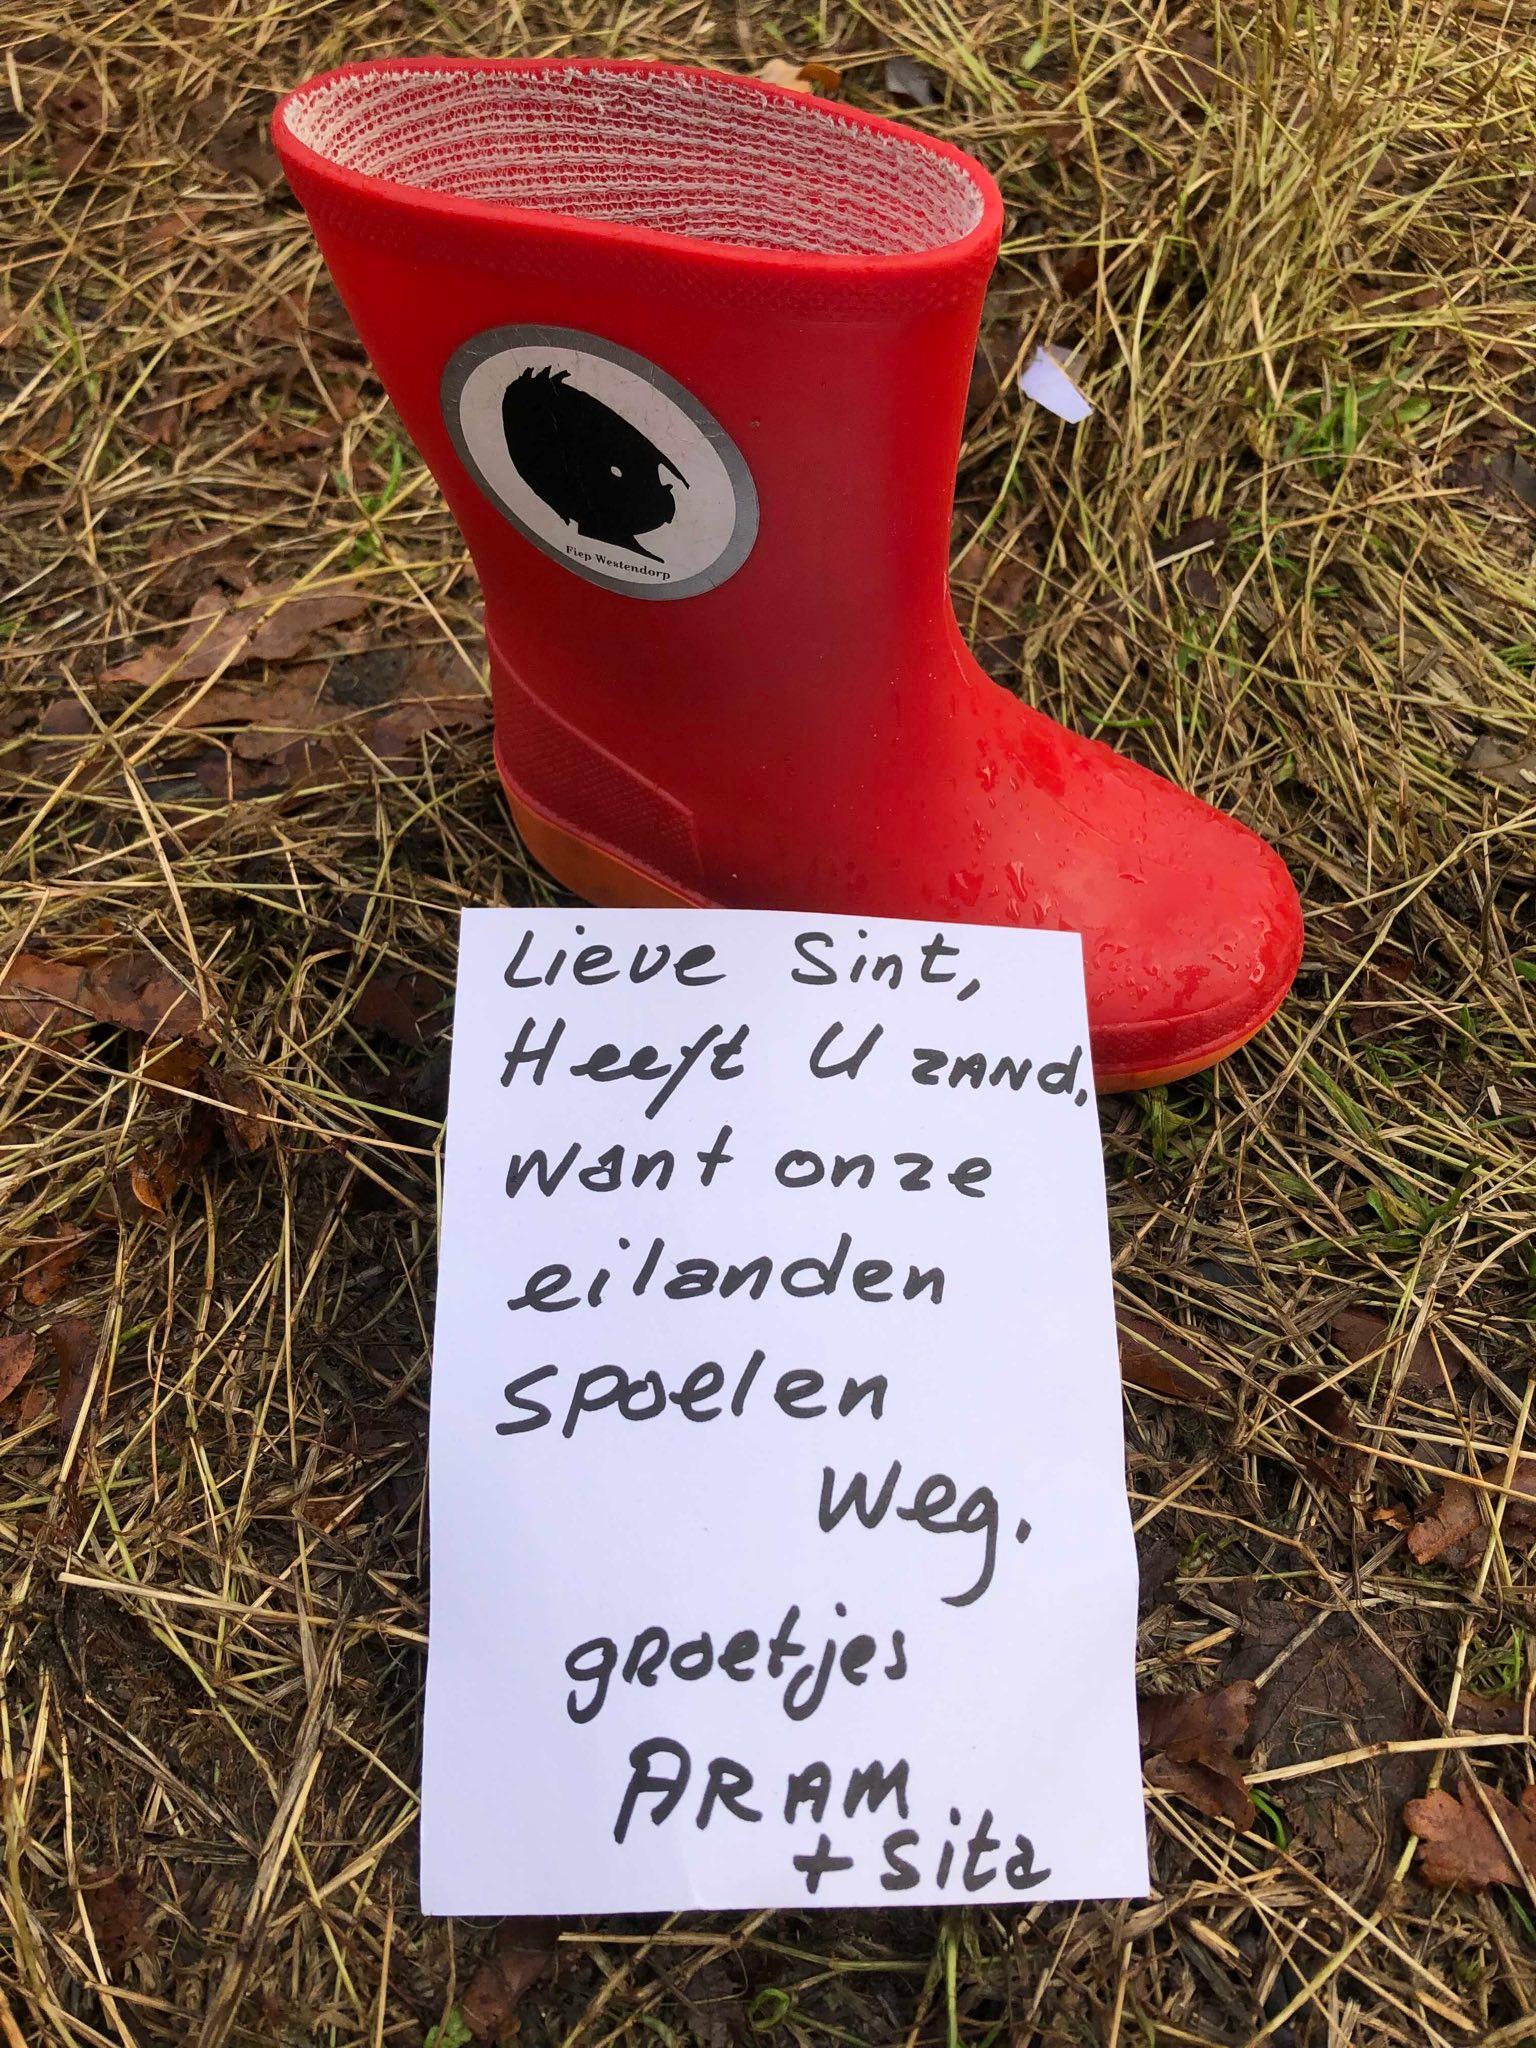 Fiep Westendorp
Lieve Sint,
Heeft U zand,
want onze
eilanden
spoelen
weg.
groetjes
ARAM
+ Sita